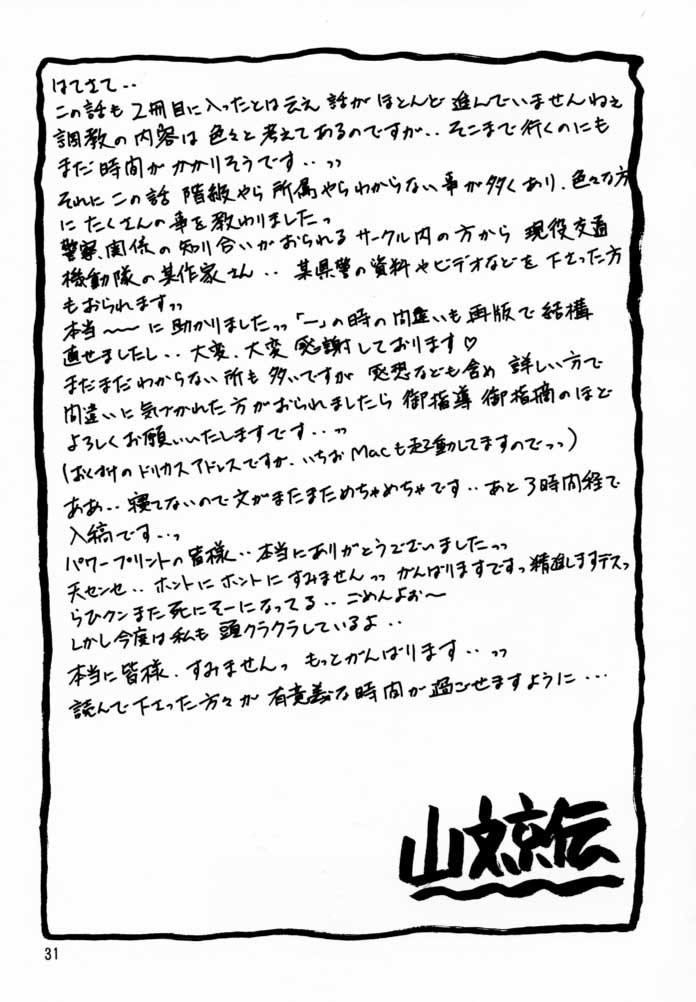 はてさて・・
この話も2冊目に入ったとは云え話がほとんど進んでいませんねぇ
調教の内容は色々と考えてあるのですが・・そこまで行くのにも
まだ時間がかかりそうです・・っっ
それにこの話階級やら所属やらわからない事が多くあり、色々な方
にたくさんの事を教わりましたっ
警察関係の知り合いがおられるサークル内の方から現役交通
機動隊の某作家さん・・某県警の資料やビデオなどを下さった方
もおられますっっ
本当〜〜に助かりましたっっ「一」の時の間違いも再版で結構
直せましたし・・大変、大変感謝しております♡
まだまだわからない所も多いですが感想なども含め詳しい方で
間違いに気づかれた方がおられましたら御指導御指摘のほど
よろしくお願いいたしますです・・っっ
(おくづけのドリカスアドレスですが、いちおMacも起動してますのでっっ)
ああ・・寝てないので文がまたまためちゃめちゃです・・あと3時間程で
入稿です・・っ
パワープリントの皆様・・本当にありがとうございましたっっ
天センセ・・ホントにホントにすみませんっっがんばりますですっ精進しますデスっ
らひクンまた死にそーになってる・・ごめんよぉ〜
しかし今度は私も頭クラクラしているよ・・
本当に皆様、すみませんっもっとがんばります・・っっ
読んで下さった方々が有意義な時間が過ごせますように・・・
山文京伝
31